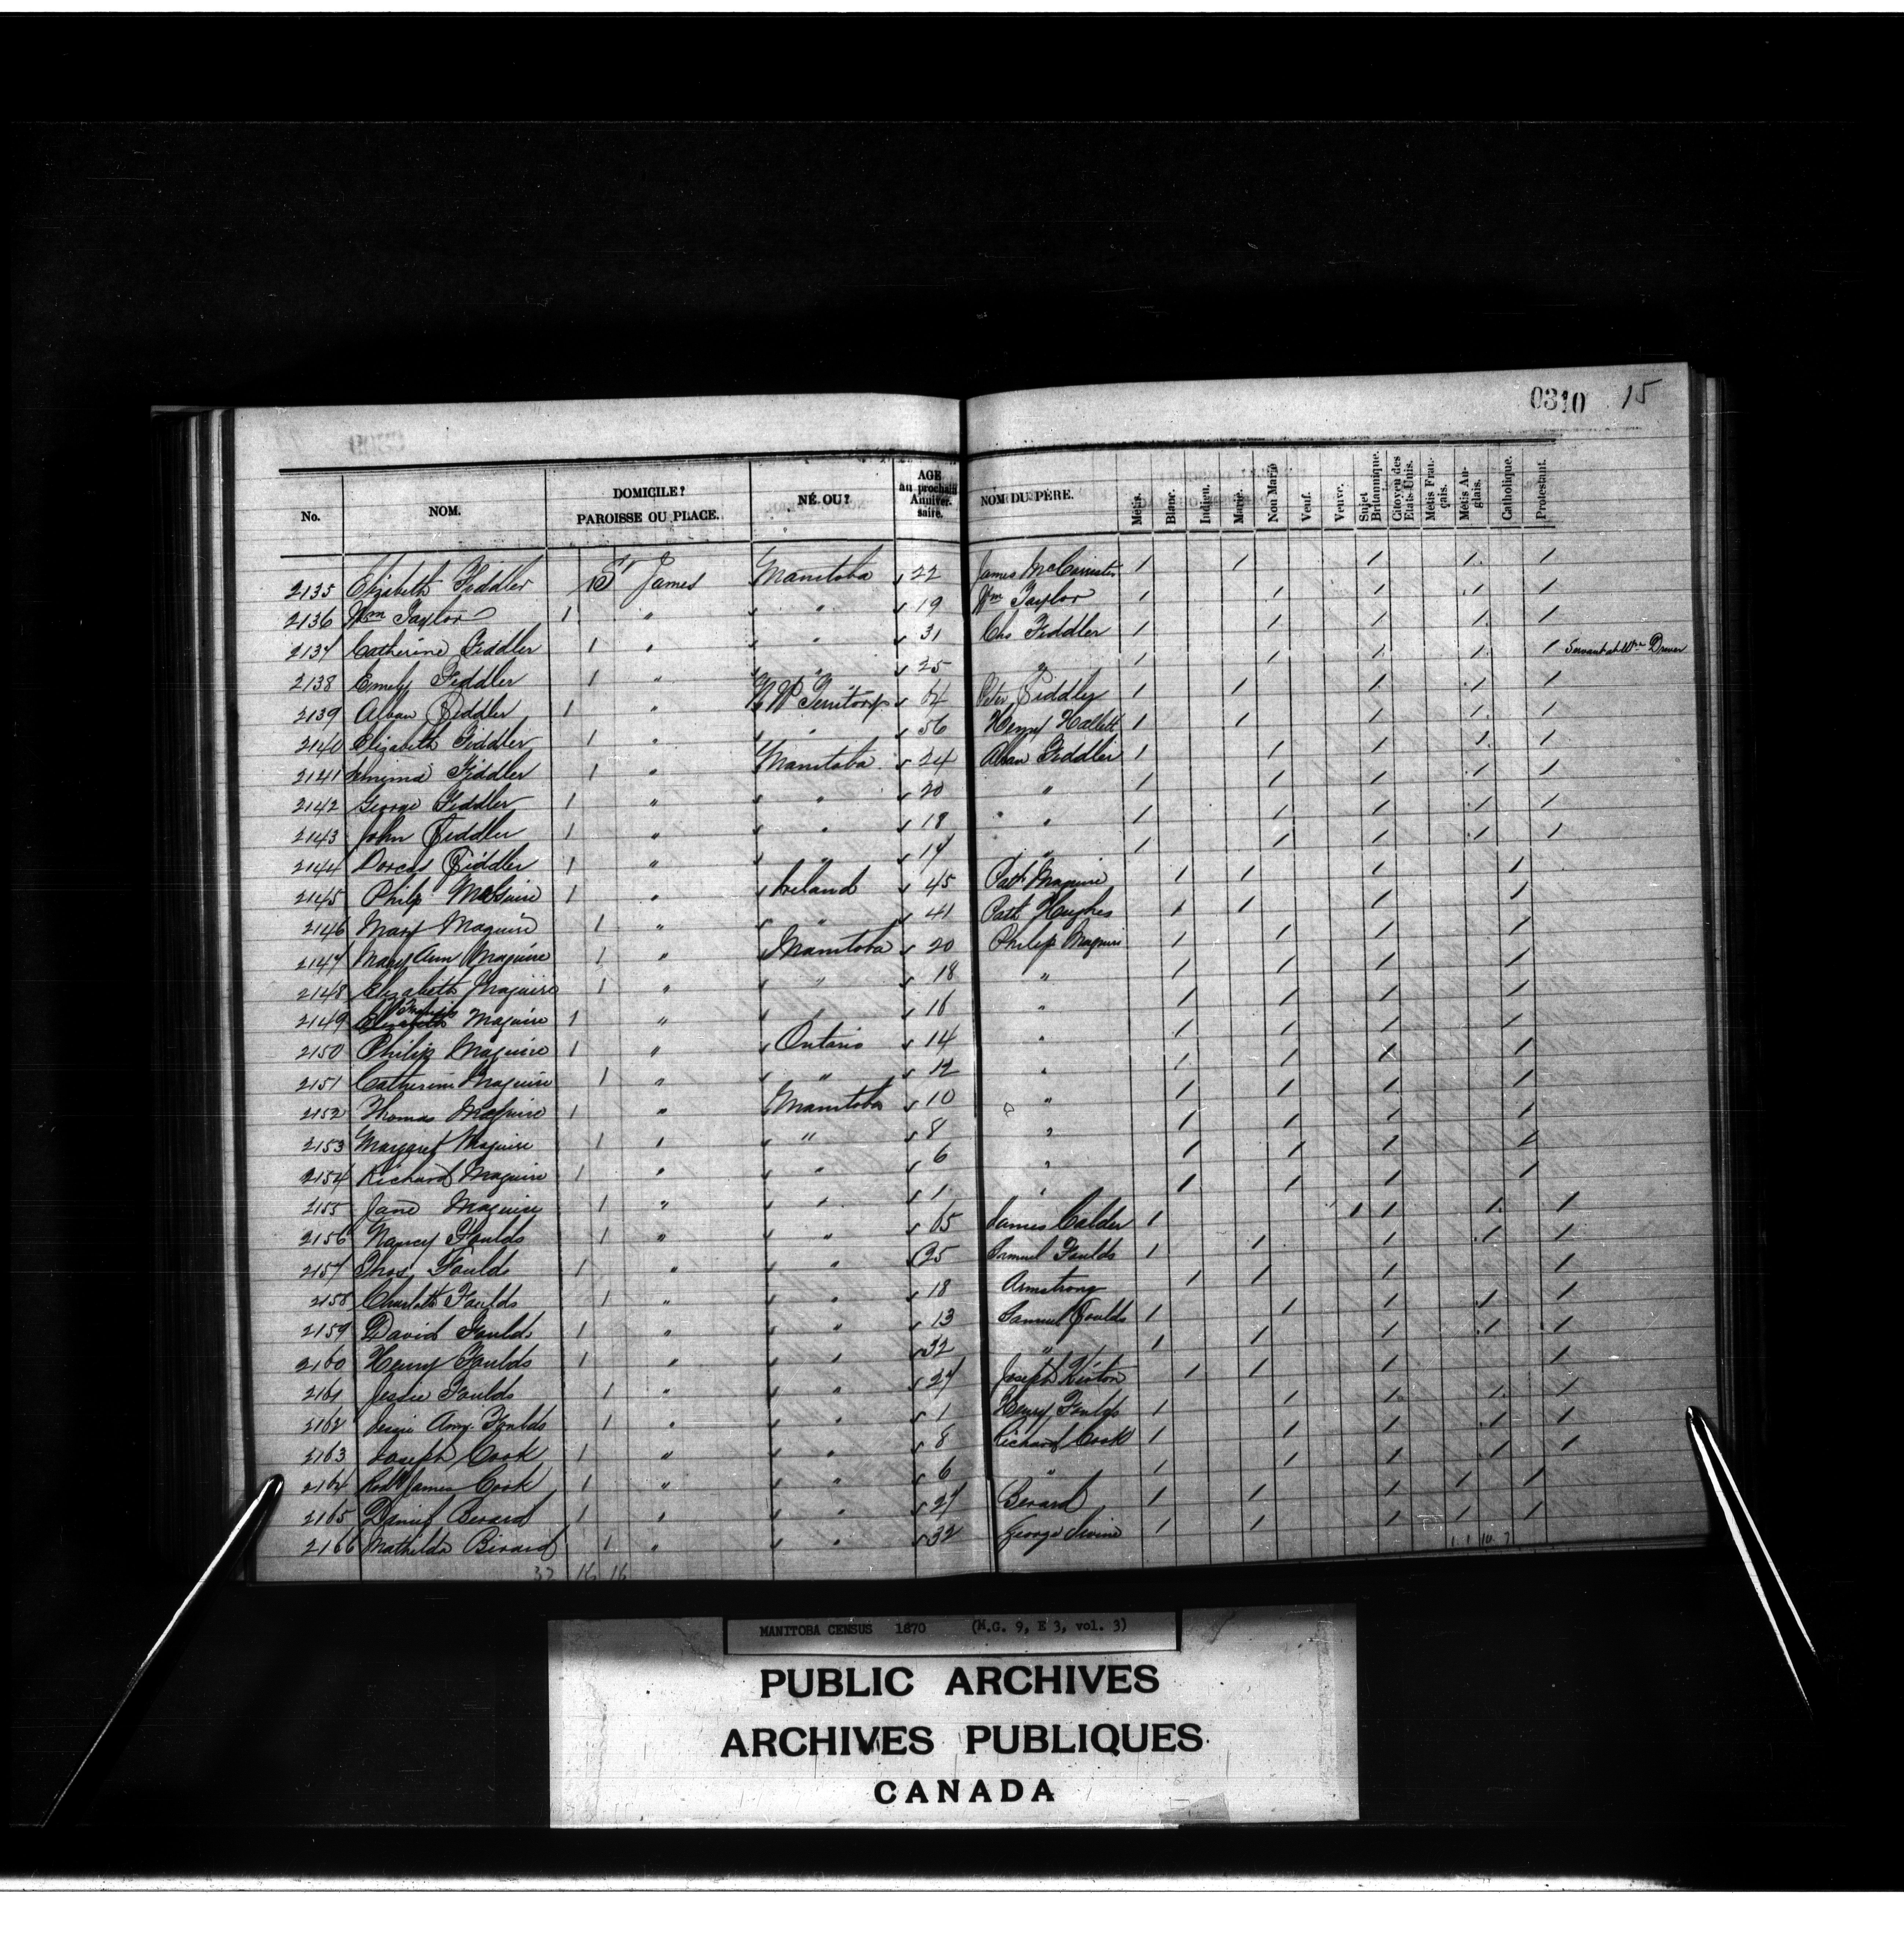 0310 15
No. NOM. DOMICILE? PAROISSE OU PLACE. NÉ. OU? AGE au prochain Anniver- saire. NOM DU PÈRE. Métis. Blanc. Indien. Marié. Non Marié Veuf. Veuve. Sujet Britannique. Citoyen des Etats-Unis. Métis Fran- çais. Métis An- glais. Catholique. Protestant.
2135 Elizabeth Fiddler 1 St James Manitoba 22 James McCorrister / / / / /
2136 Wm Taylor 1 " " 19 Wm Taylor / / / / /
2137 Catherine Fiddler 1 " " 31 Chs Fiddler / / / / /
2138 Emely Fiddler 1 " " 25 " / / / / / Servant at Wm Drever
2139 Alban Fiddler 1 " N W Territory 64 Peter Fiddler / / / / /
2140 Elizabeth Fiddler 1 " " 56 Henry Hallett / / / / /
2141 Jemima Fiddler 1 " Manitoba 24 Alban Fiddler / / / / /
2142 George Fiddler 1 " " 20 " / / / / /
2143 John Fiddler 1 " " 18 " / / / / /
2144 Dorcas Fiddler 1 " " 14 " / / / / /
2145 Philip McGuire 1 " Ireland 45 Patk Maguire / / / /
2146 Mary Maguire 1 " " 41 Patk Hughes / / / /
2147 Mary Ann Maguire 1 " Manitoba 20 Philip Maguire / / / /
2148 Elizabeth Maguire 1 " " 18 " / / / /
2149 Francis Maguire 1 " " 16 " / / / /
2150 Philip Maguire 1 " Ontario 14 " / / / /
2151 Catherine Maguire 1 " " 12 " / / / /
2152 Thomas Maguire 1 " Manitoba 10 " / / / /
2153 Margaret Maguire 1 " " 8 " / / / /
2154 Richard Maguire 1 " " 6 " / / / /
2155 Jane Maguire 1 " " 1 " / / / /
2156 Nancy Foulds 1 " " 65 James Calder / / / / /
2157 Thos Foulds 1 " " 35 Samuel Foulds / / / / /
2158 Charlotte Foulds 1 " " 18 Armstrong / / / /
2159 David Foulds 1 " " 13 Samuel Foulds / / / / /
2160 Henry Foulds 1 " " 32 " / / / / /
2161 Jessie Foulds 1 " " 27 Joseph Kirton / / / /
2162 Jessie Amy Foulds 1 " " 1 Henry Foulds / / / / /
2163 Joseph Cook 1 " " 8 Richard Cook / / / / /
2164 Rodk James Cook 1 " " 6 " / / / / /
2165 Daniel Berard 1 " " 27 Berard / / / / /
2166 Mathilda Berard 1 " " 32 George Irvine / / / / /
32 16 16
MANITOBA CENSUS 1870 (M.G. 9, E 3, vol. 3)
PUBLIC ARCHIVES
ARCHIVES PUBLIQUES
CANADA